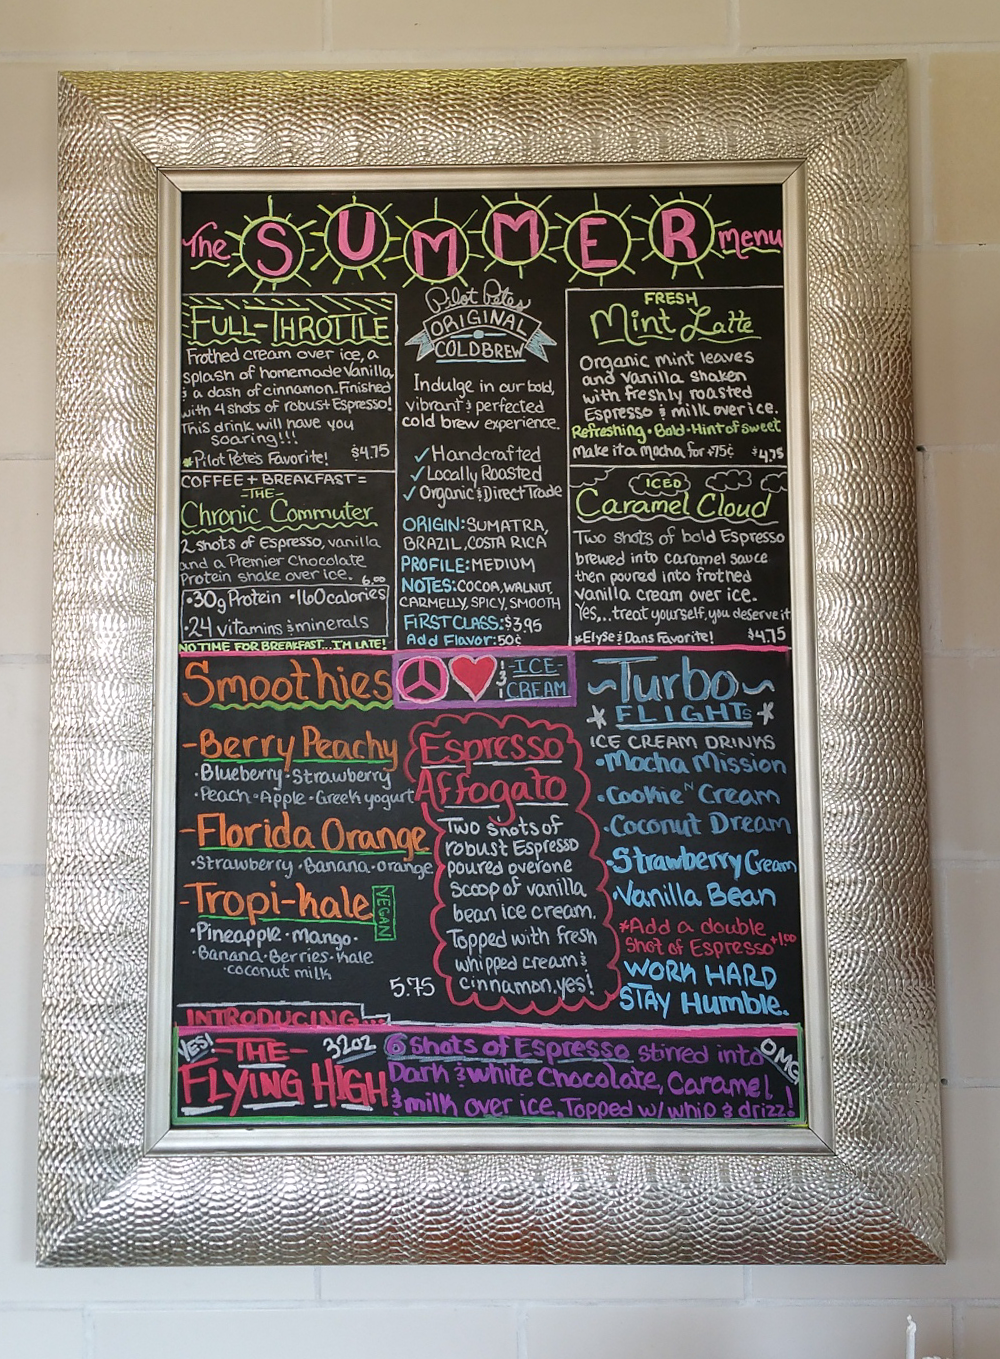 The SUMMER menu
FULL-THROTTLE
Frothed cream over ice, a
splash of homemade Vanilla,
& a dash of cinnamon. Finished
with 4 shots of robust Espresso!
This drink will have you
soaring!!!
*Pilot Pete's Favorite! $4.75
COFFEE + BREAKFAST =
-THE-
Chronic Commuter
2 shots of Espresso, vanilla
and a Premier Chocolate
Protein shake over ice. 6.00
•30g Protein •160calories
•24 vitamins & minerals
NO TIME FOR BREAKFAST...I'M LATE!
Pilot Petes
ORIGINAL
COLDBREW
Indulge in our bold,
vibrant & perfected
cold brew experience.
✓Handcrafted
✓Locally Roasted
✓Organic & Direct Trade
ORIGIN: SUMATRA,
BRAZIL, COSTA RICA
PROFILE: MEDIUM
NOTES: COCOA, WALNUT,
CARMELLY, SPICY, SMOOTH
FIRST CLASS: $3.95
Add Flavor: 50¢
FRESH
Mint Latte
Organic mint leaves
and vanilla shaken
with freshly roasted
Espresso & milk over ice.
Refreshing • Bold • Hint of sweet
Make it a Mocha for +75¢ $4.75
ICED
Caramel Cloud
Two shots of bold Espresso
brewed into caramel sauce
then poured into frothed
vanilla cream over ice.
Yes,..treat yourself, you deserve it
*Elyse & Dans Favorite! $4.75
Smoothies
-Berry Peachy
•Blueberry•Strawberry
•Peach•Apple•Greek yogurt
-Florida Orange
•Strawberry•Banana•orange
-Tropi-kale VEGAN
•Pineapple•mango•
•Banana•Berries•Kale
•coconut milk
& -ICE-
CREAM
Espresso
Affogato
Two shots of
robust Espresso
poured over one
scoop of vanilla
bean ice cream.
Topped with fresh
whipped cream &
cinnamon, yes!
5.75
~Turbo~
*FLIGHTs*
ICE CREAM DRINKS
•Mocha Mission
•Cookie N Cream
•Coconut Dream
•Strawberry Cream
•Vanilla Bean
*Add a double
Shot of Espresso +1.00
WORK HARD
STAY Humble.
INTRODUCING...
YES! -THE- 32oz
FLYING HIGH
6 Shots of Espresso stirred into
Dark & white Chocolate, Caramel,
& milk over ice. Topped w/ whip & drizz!
OMG